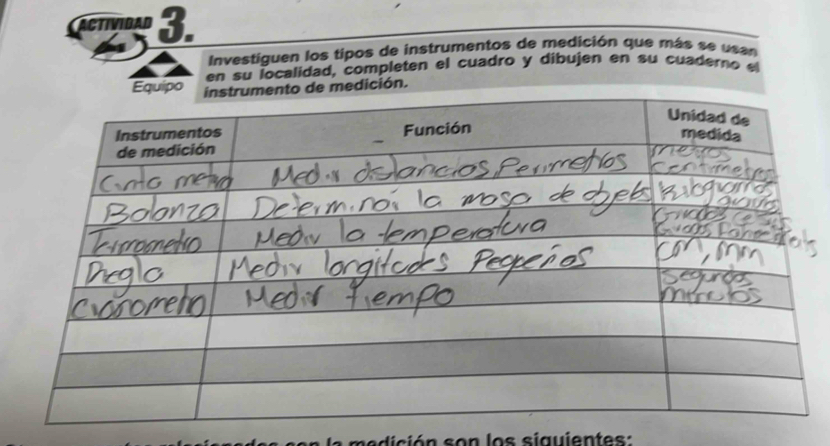 ACTIVIDAD 3.
Investiguen los tipos de instrumentos de medición que más se usan
en su localidad, completen el cuadro y dibujen en su cuaderno el
Equipo instrumento de medición.
Instrumentos de medición
Función
Unidad de medida
Cinta metro Medir distancias, Perimetros metros centimetros
Balanza Determinar la masa de objets Kilogramos
Termometro Medir la temperatura Grados Celsius Grados
Regla Medir longitudes Pequeños cm, mm
Cronometro Medir tiempo segundos minutos
la medición son los siguientes: